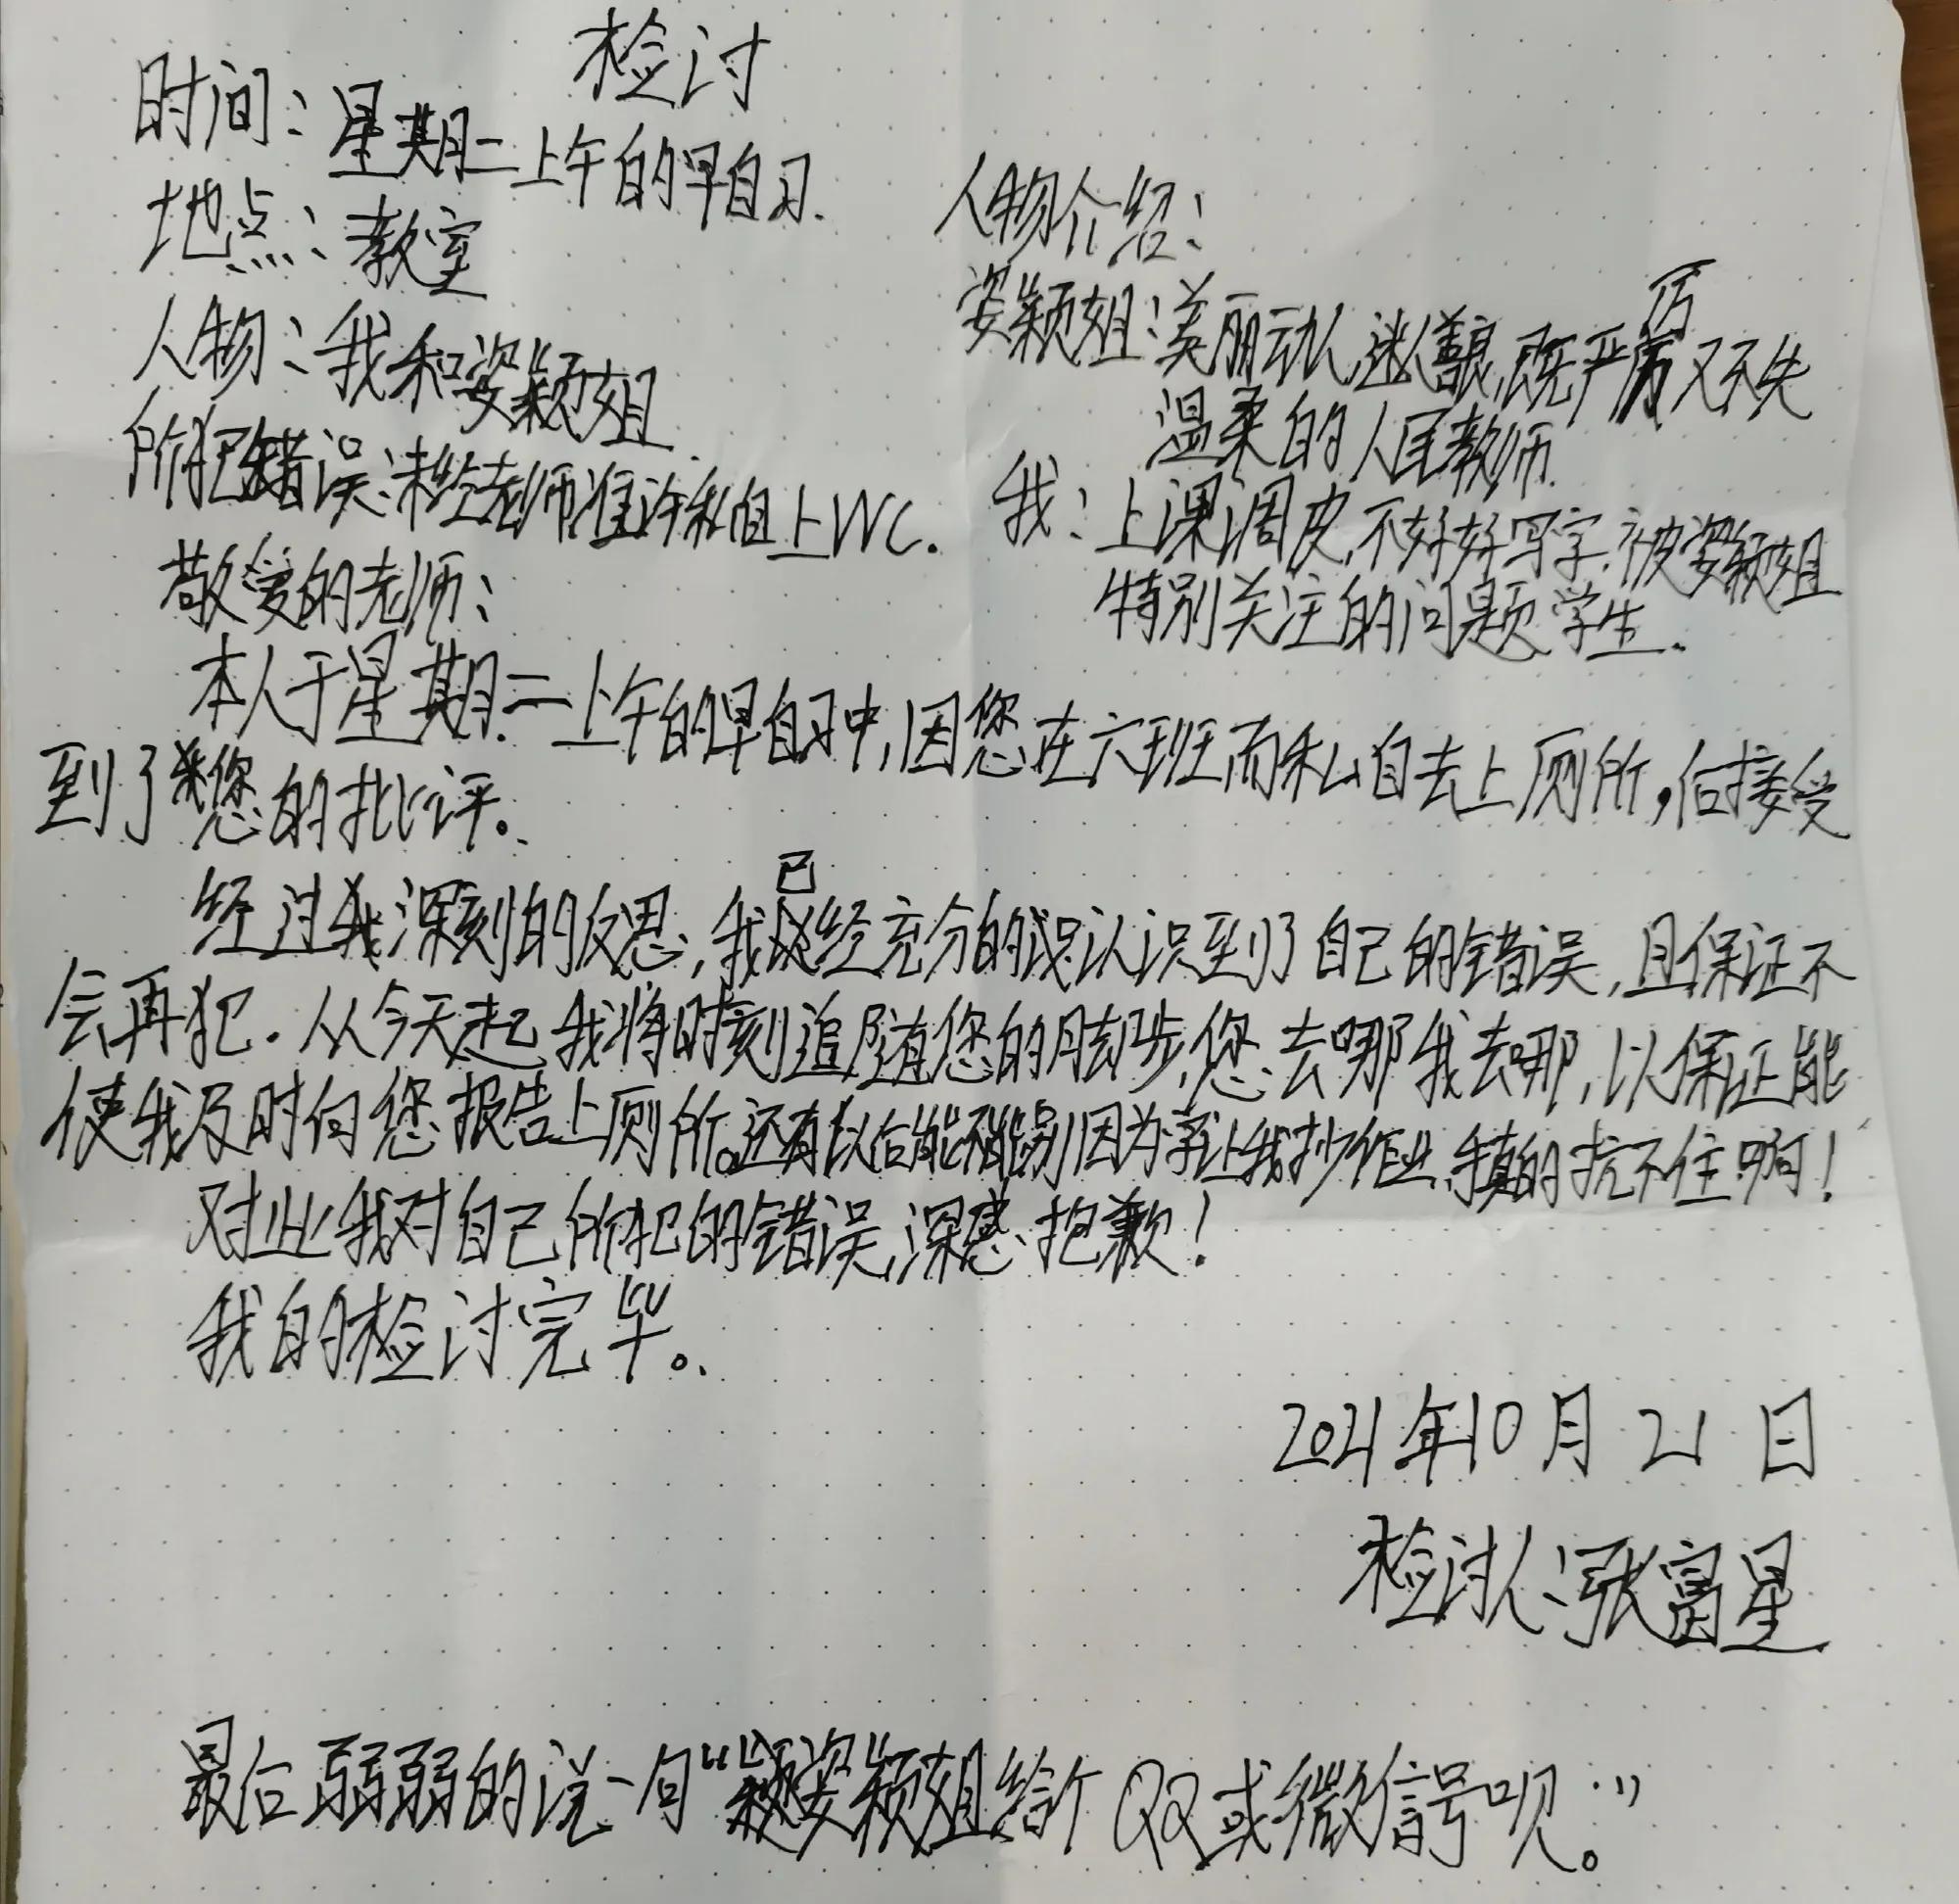 检讨
时间：星期二上午的早自习.
地点：教室
人物：我和姿颖姐.
所犯错误：未经老师准许私自上WC.
人物介绍：
姿颖姐：美丽动人,迷人善良,既严厉又不失
温柔的人民教师.
我：上课调皮,不好好写字.被姿颖姐
特别关注的问题学生.
敬爱的老师：
本人于星期二上午的早自习中,因您在六班而私自去上厕所,后接受
到了您的批评。
经过我深刻的反思,我已经充分的认识到了自己的错误,且保证不
会再犯.从今天起我将时刻追随您的脚步,您去哪我去哪,以保证能
使我及时向您报告上厕所。还有以后能不能别因为字让我抄作业,我真的抗不住啊！
对此我对自己所犯的错误,深感抱歉！
我的检讨完毕。
2021年10月21日
检讨人：张富星
最后弱弱的说一句“姿颖姐给个QQ或微信號呗。”